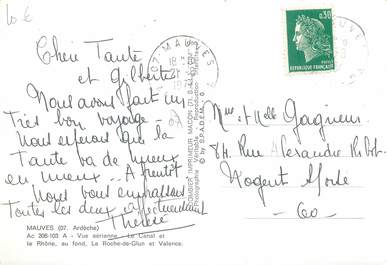 10 €
Chère Tante
et Gilberte
Nous avons fait un
très bon voyage -
Nous espérons que la
Tante va de mieux
en mieux - A bientôt
Nous vous embrassons
Toutes les deux affectueusement
Thérèse
MAUVES (07. Ardèche)
Ac 206-103 A - Vue aérienne - Le Canal et
le Rhône, au fond, La Roche-de-Glun et Valence.
07 - MAUVES
18 H
21
COMBIER IMPRIMEUR MACON
Photographie
© by S.P.A.D.E.M.
0,30
REPUBLIQUE FRANÇAISE
MAUVES
Mme et Melle Gagneur
84 Rue Alexandre
Nogent s/Oise
- 60 -